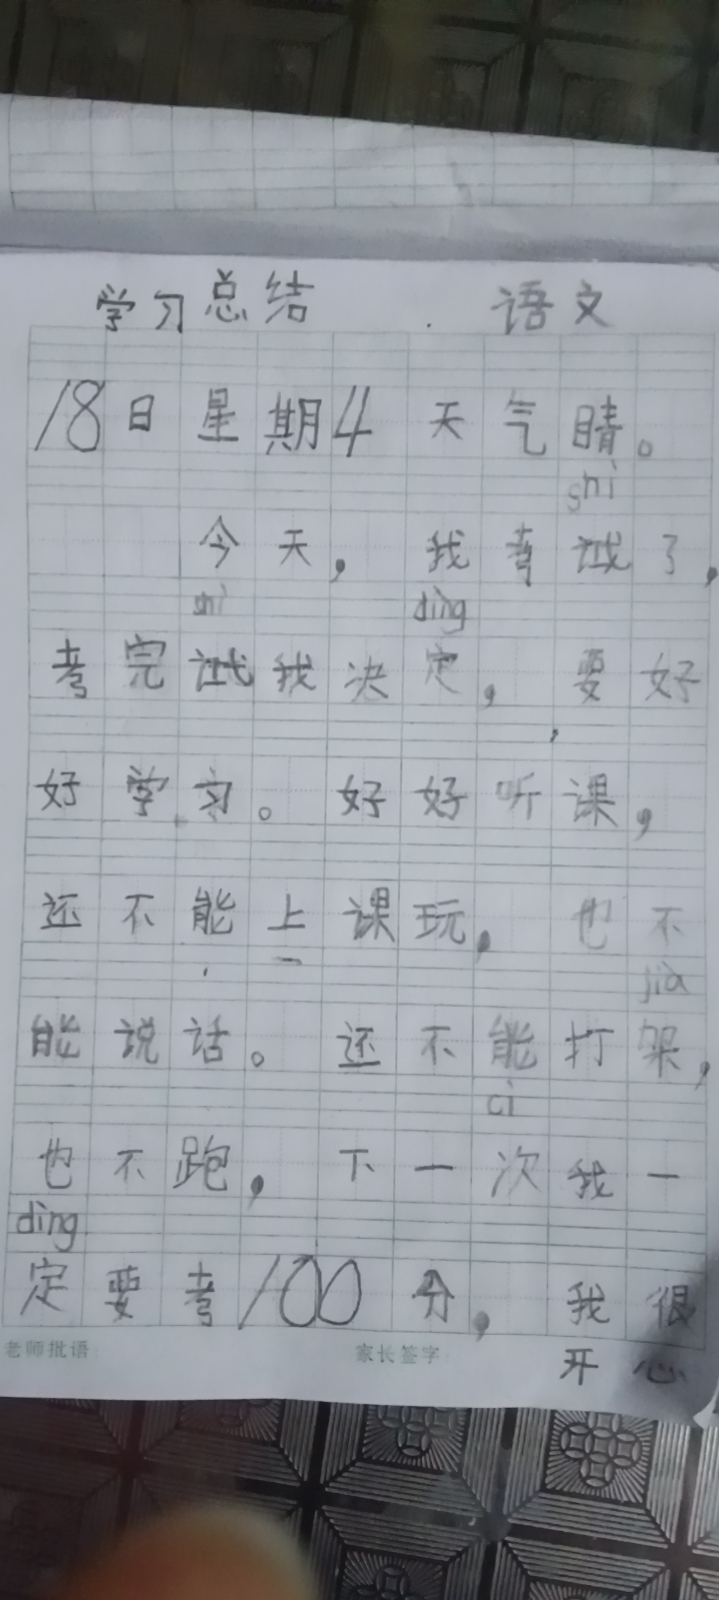 学习总结 语文
18日星期4 天气晴。
shi
今天，我考试了，
shi ding
考完试我决定，要好
好学习。好好听课，
还不能上课玩，也不
jià
能说话。还不能打架，
ci
也不跑，下一次我一
ding
定要考100分，我很
老师批语： 家长签字：
开心